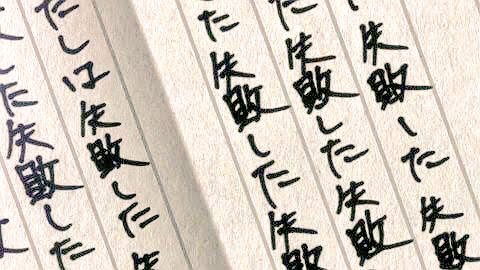 失敗した失
した失敗した失敗
した失敗した失敗
たしは失敗した失
した失敗した